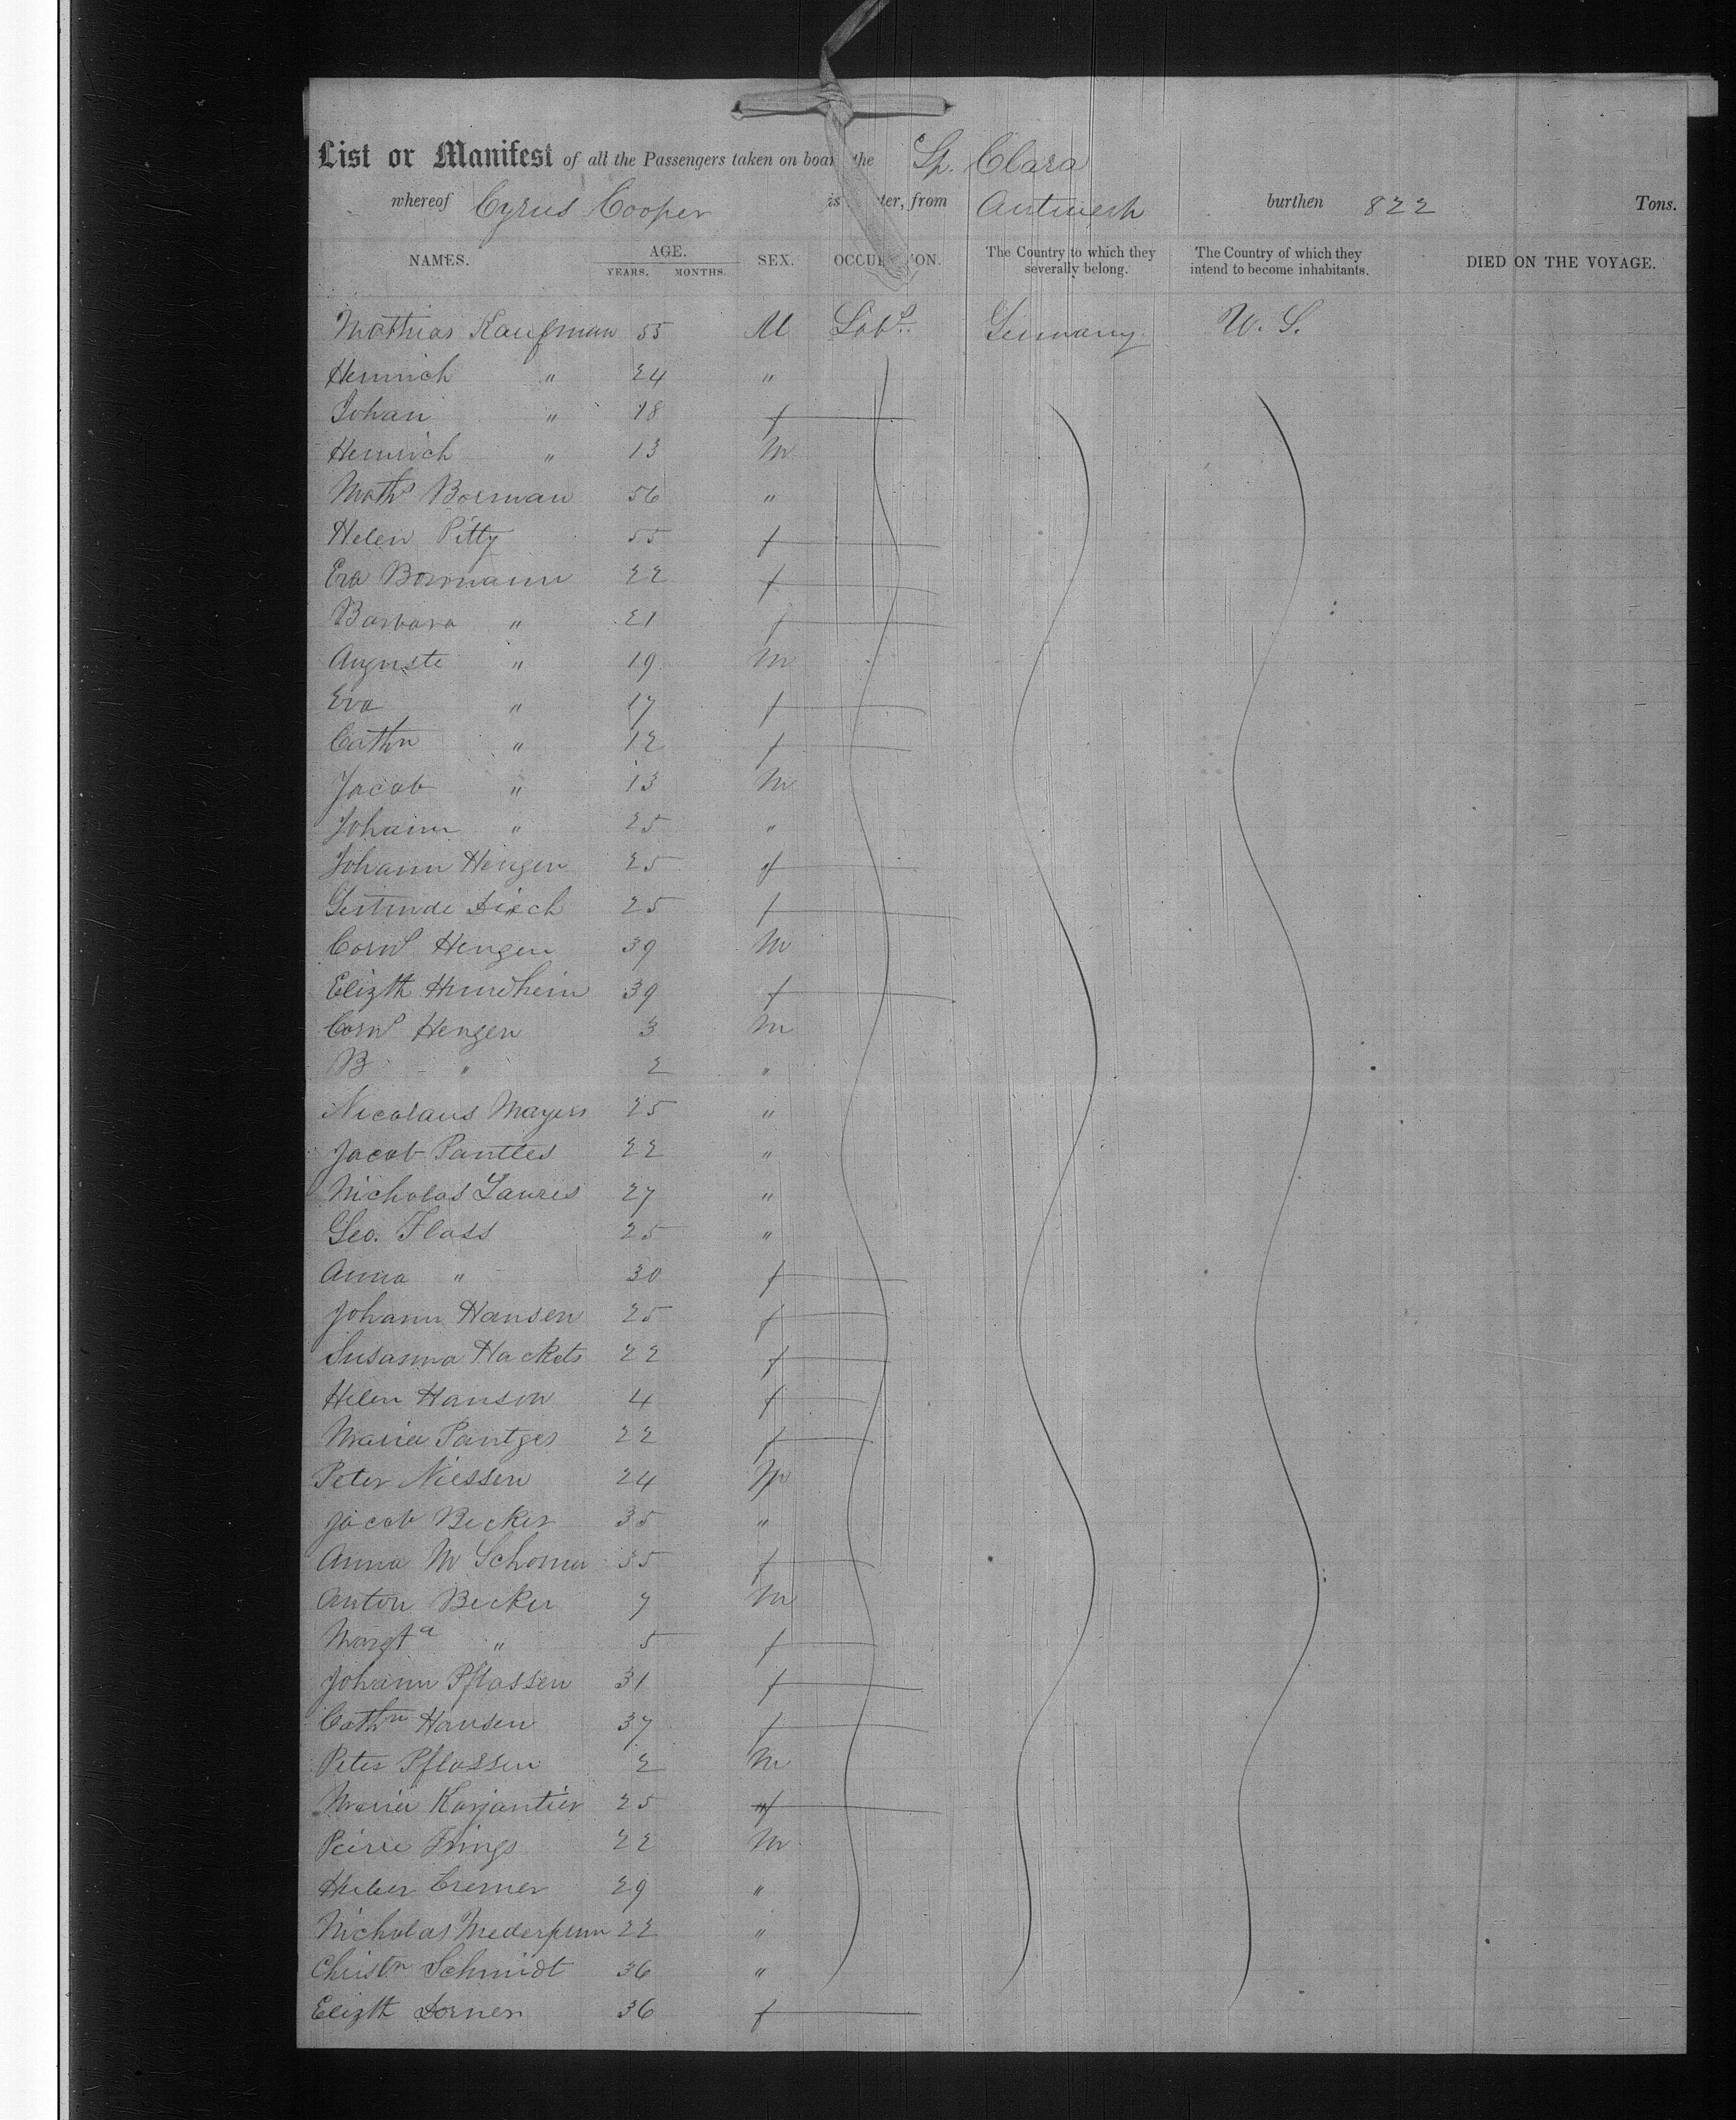 List or Manifest of all the Passengers taken on board the Sp. Clara
whereof Cyrus Cooper is Master, from Antwerp burthen 822 Tons.
NAMES. AGE. SEX. OCCUPATION. The Country to which they severally belong. The Country of which they intend to become inhabitants. DIED ON THE VOYAGE.
YEARS. MONTHS.
Mathias Kaufman 55 M Labr. Germany U. S.
Heinrich " 24 "
Johan " 18 f
Heinrich " 13 m
Maths Borman 56 "
Helen Pitty 55 f
Eva Bormann 22 f
Barbara " 21 f
Auguste " 19 m
Eva " 17 f
Cathn " 12 f
Jacob " 13 m
Johann " 25 "
Johann Hengen 25 f
Gertrude Disch 25 f
Cornl Hengen 39 m
Elizth 39 f
Cornl Hengen 3 m
B " 2 "
Nicolaus Mayers 25 "
Jacob Pantles 22 "
Nicholas Laures 27 "
Geo. Flass 25 "
Anna " 30 f
Johann Hansen 25 f
Susanna Hackets 22 f
Helen Hanson 4 f
Maria Pantges 22 f
Peter Niessen 24 m
Jacob Becker 35 "
Anna M Schomer 35 f
Anton Becker 7 m
Margta " 5 f
Johann Pflassen 31 f
Cathn Hansen 37 f
Peter Pflassen 2 m
Maria Karjantier 25 f
Peirre Frings 22 m
Huber Cremer 29 "
Nicholas 22 "
Christn Schmidt 36 "
Elizth Dorner 36 f